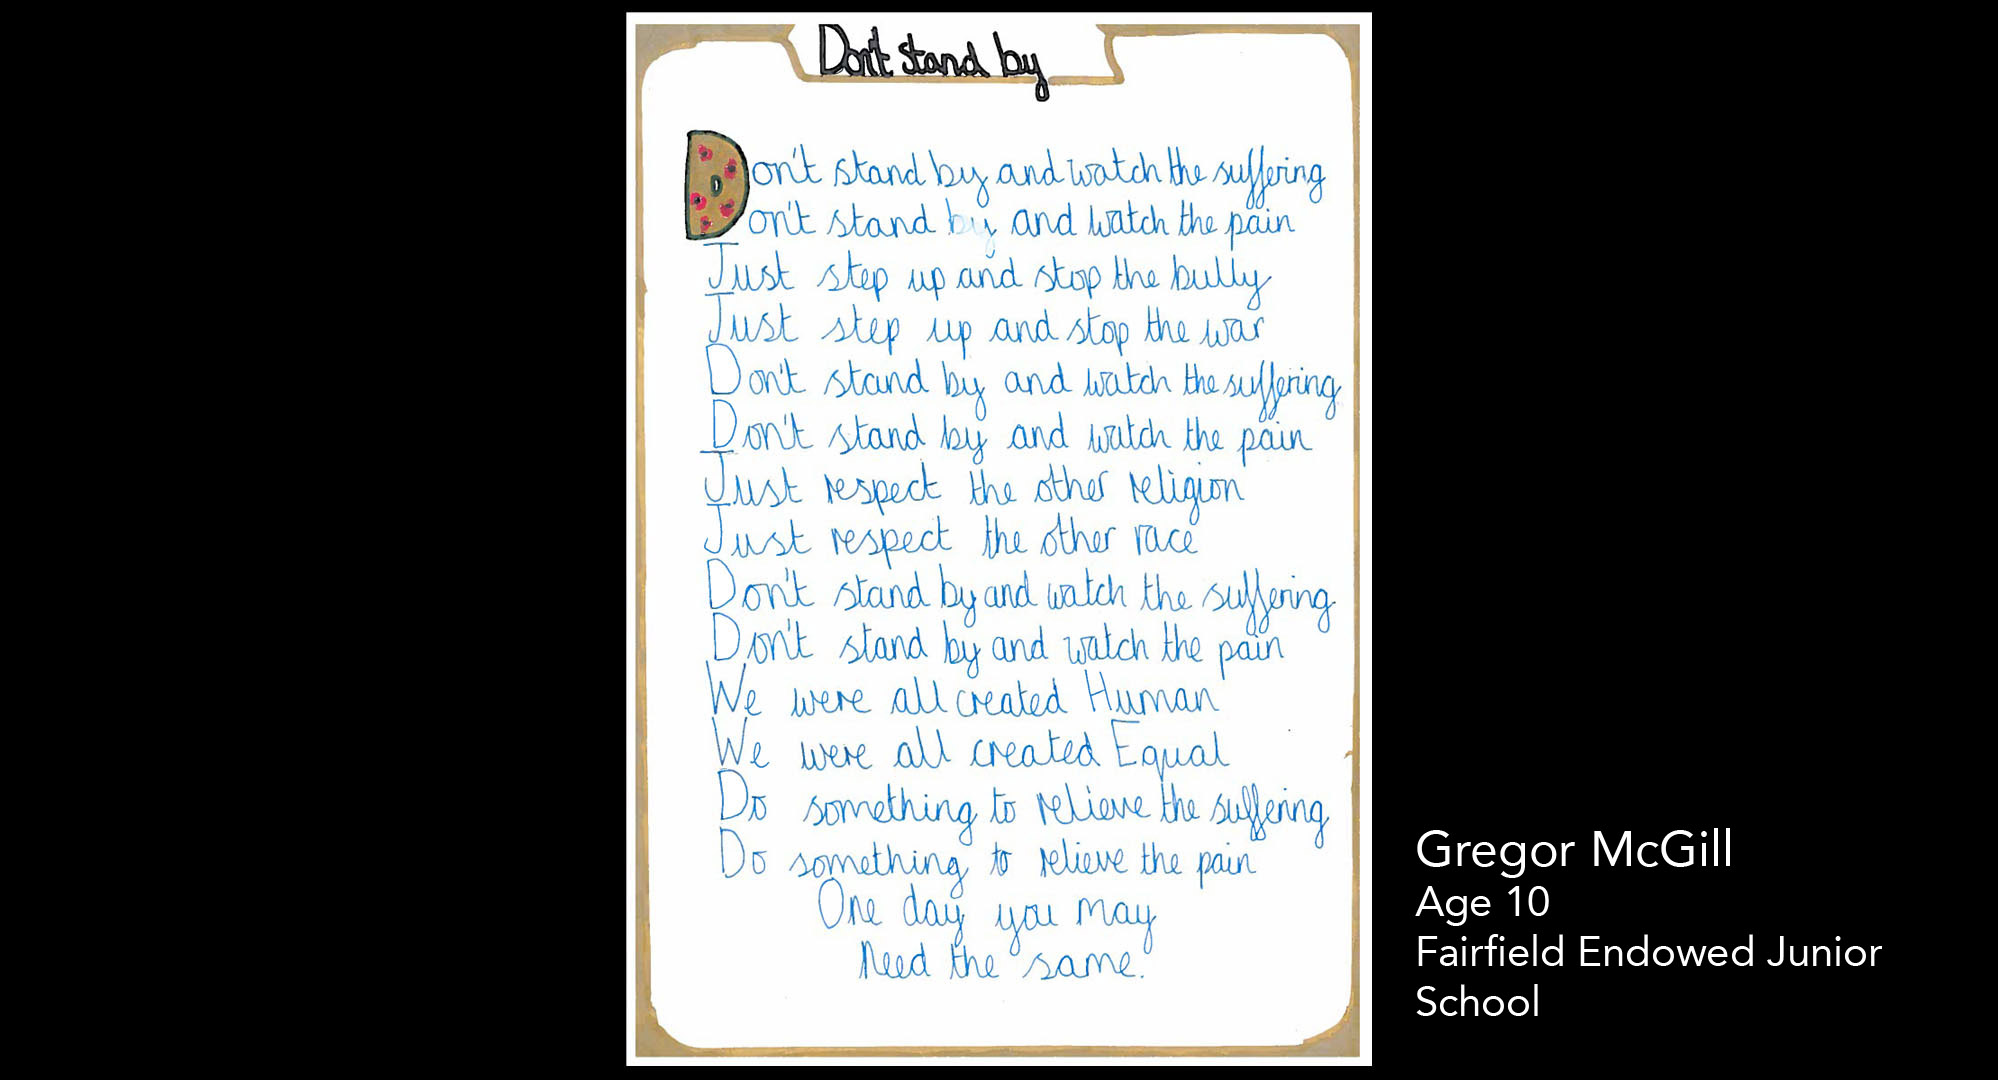 Don't stand by
Don't stand by and watch the suffering
Don't stand by and watch the pain
Just step up and stop the bully
Just step up and stop the war
Don't stand by and watch the suffering
Don't stand by and watch the pain
Just respect the other religion
Just respect the other race
Don't stand by and watch the suffering
Don't stand by and watch the pain
We were all created Human
We were all created Equal
Do something to relieve the suffering
Do something to relieve the pain
One day you may
Need the same.
Gregor McGill
Age 10
Fairfield Endowed Junior
School